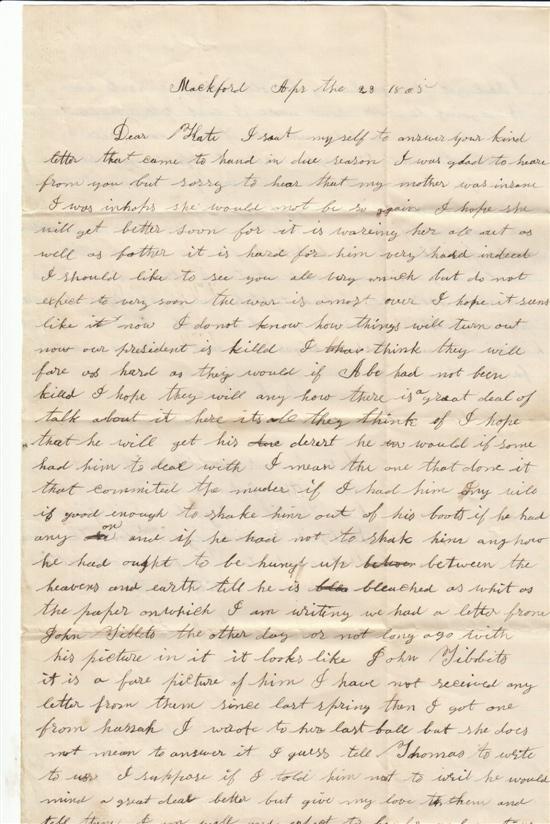 Mackford Apr the 23 1865
Dear Kate I seat my self to answer your kind
letter that came to hand in due season I was glad to heare
from you but sorry to hear that my mother was insane
I was inhops she would not be so again I hope she
will get better soon for it is wareing her all out as
well as father it is hard for him very hard indeed
I should like to see you all very much but do not
expect to very soon the war is amost over I hope it seems
like it now I do not know how things will turn out
now our president is killd I think they will
fare as hard as they would if Abe had not been
killd I hope they will any how there is a great deal of
talk about it here its all they think of I hope
that he will get his desert he would if some
had him to deal with I mean the one that done it
that commited the muder if I had him my will
is good enough to shake him out of his boots if he had
any on and if he had not to shak him any how
he had ought to be hung up between the
heavens and earth till he is bleached as whit as
the paper on which I am writing we had a letter from
John Tibbits the other day or not long ago with
his picture in it it looks like John Tibbits
it is a fare picture of him I have not received any
letter from them since last spring then I got one
from hannah I wrote to her last but she does
not mean to answer it I guess tell Thomas to write
to us I suppose if I told him not to writ he would
mind a great deal better but give my love to them and
tell them I am well and expect to